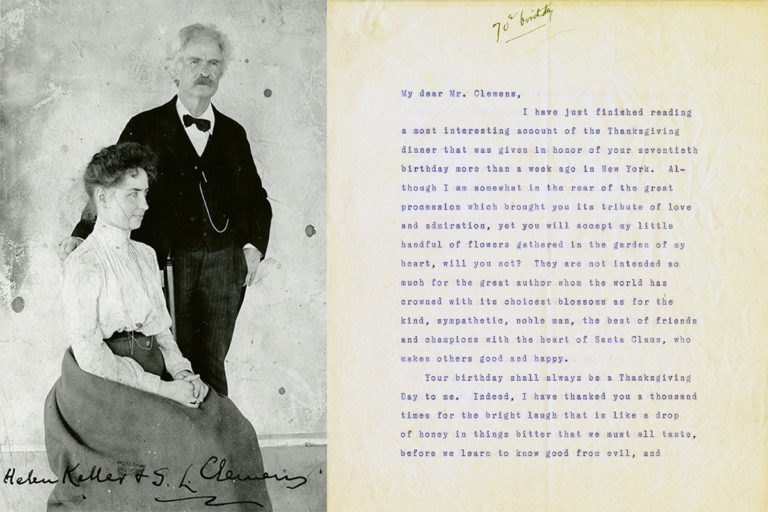 Helen Keller & S. L. Clemens
70th birthday
My dear Mr. Clemens,
I have just finished reading
a most interesting account of the Thanksgiving
dinner that was given in honor of your seventieth
birthday more than a week ago in New York. Al-
though I am somewhat in the rear of the great
procession which brought you its tribute of love
and admiration, yet you will accept my little
handful of flowers gathered in the garden of my
heart, will you not? They are not intended so
much for the great author whom the world has
crowned with its choicest blossoms as for the
kind, sympathetic, noble man, the best of friends
and champions with the heart of Santa Claus, who
makes others good and happy.
Your birthday shall always be a Thanksgiving
Day to me. Indeed, I have thanked you a thousand
times for the bright laugh that is like a drop
of honey in things bitter that we must all taste,
before we learn to know good from evil, and